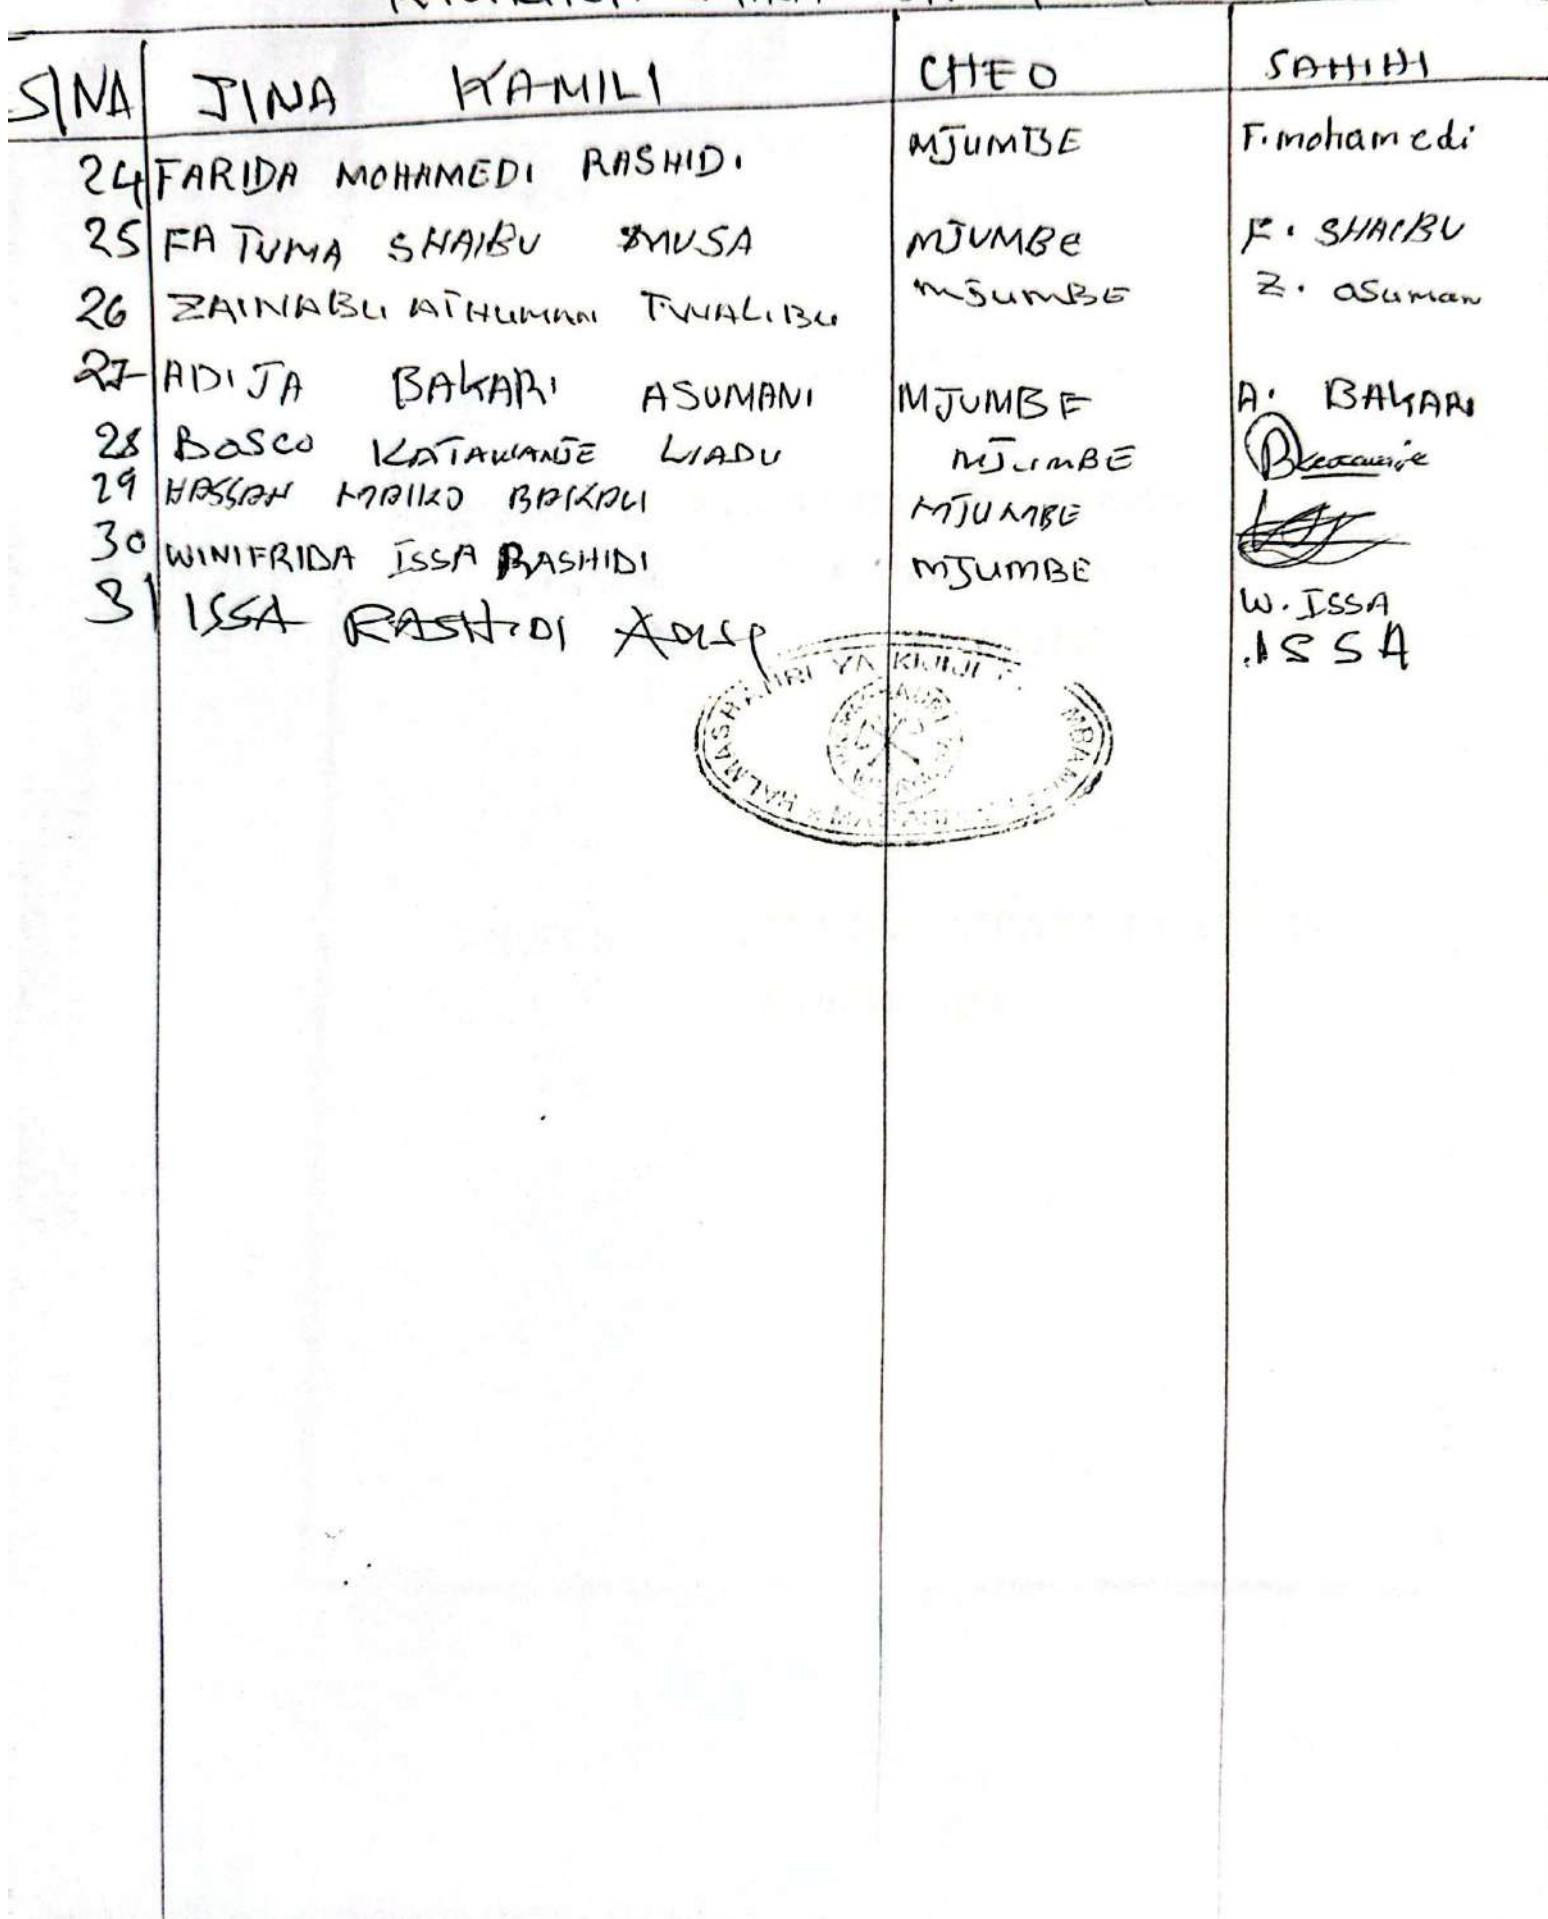 S/NA JINA KAMILI CHEO SAHIHI
24 FARIDA MOHAMEDI RASHIDI MJUMBE F. mohamedi
25 FATUMA SHAIBU MUSA MJUMBE F. SHAIBU
26 ZAINABU ATHUMAN TWALIBU MJUMBE Z. asuman
27 ADIJA BAKARI ASUMANI MJUMBE A. BAKARI
28 BOSCO KATAWANJE LIADU MJUMBE
29 HASSAN BAKALI MJUMBE
30 WINIFRIDA ISSA RASHIDI MJUMBE W. ISSA
31 ISSA RASHIDI .ISSA
HALMASHAURI YA KIJIJI